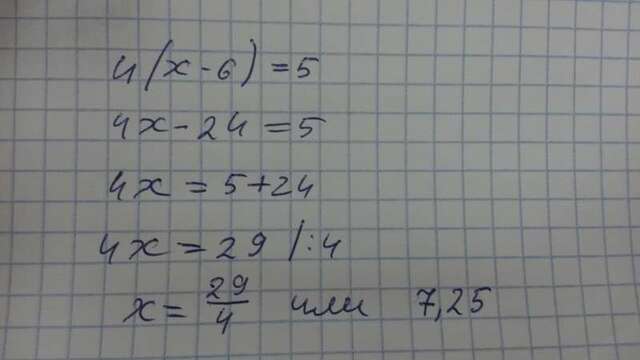 4(x-6)=5
4x-24=5
4x=5+24
4x=29 /:4
x=29/4 или 7,25